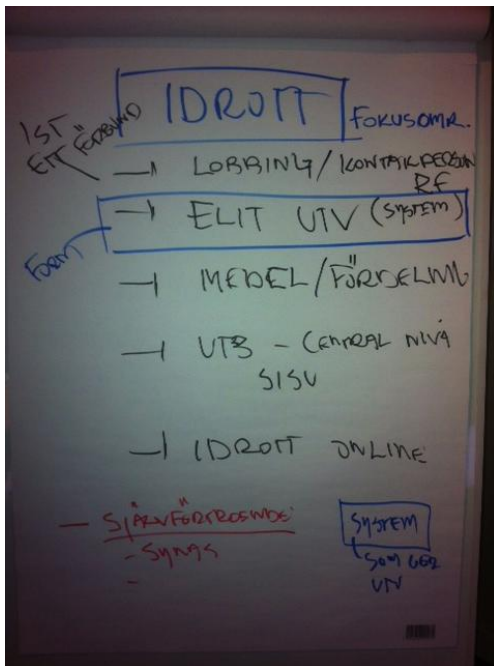 IDROTT
FOKUSOMR.
1ST
ETT FÖRBUND
LOBBING/KONTAKPERSON
RF
ELIT UTV (SYSTEM)
FORM
MEDEL/FÖRDELNING
UTB - CENTRAL NIVÅ
SISU
IDROTT ONLINE
- SJÄLVFÖRTROENDE
- SYNAS
-
SYSTEM
SOM GER
UTV